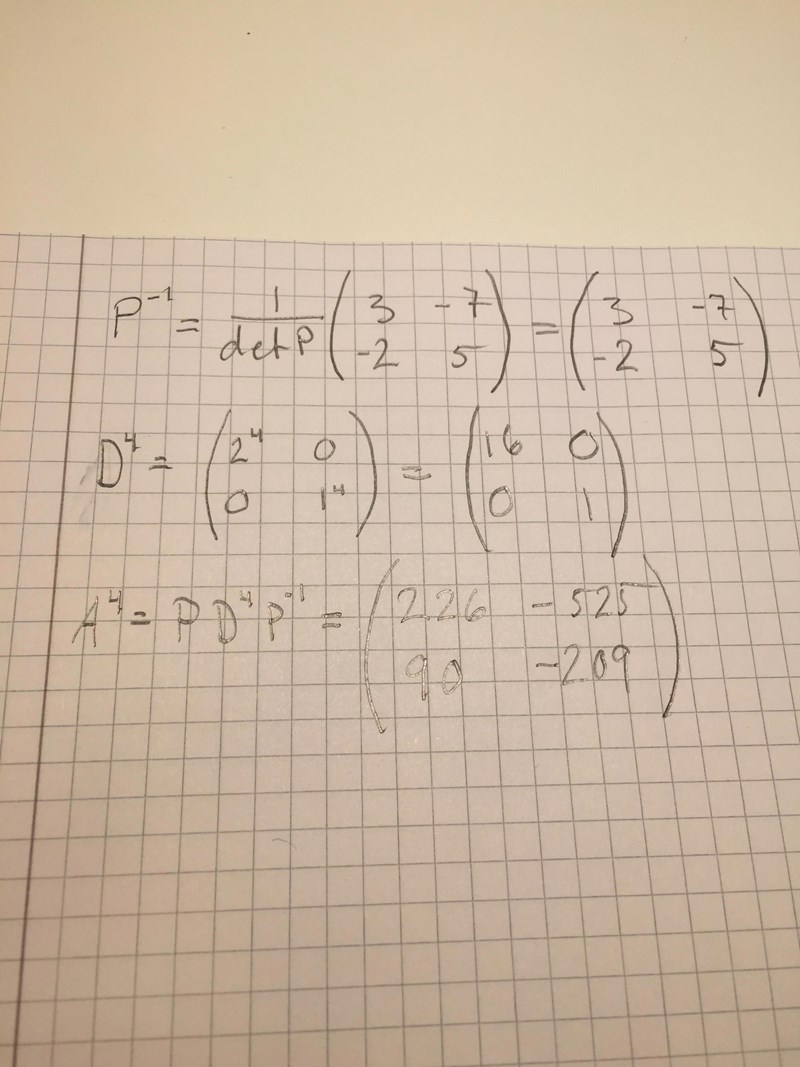 P⁻¹ = 1/det P (3 -7; -2 5) = (3 -7; -2 5)
D⁴ = (2⁴ 0; 0 1⁴) = (16 0; 0 1)
A⁴ = P D⁴ P⁻¹ = (226 -525; 90 -209)